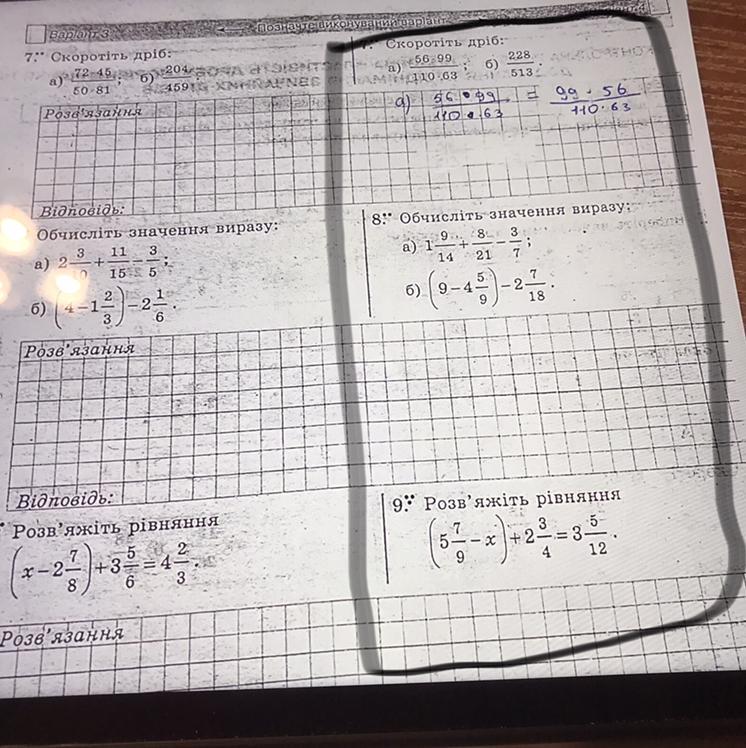 Варіант 3 Позначте виконуваний варіант
7. Скоротіть дріб:
а) 72·45/50·81; б) 204/459.
Розв'язання
Відповідь:
Обчисліть значення виразу:
а) 2 3/10 + 11/15 − 3/5;
б) (4 − 1 2/3) − 2 1/6.
Розв'язання
Відповідь:
Розв'яжіть рівняння
(x − 2 7/8) + 3 5/6 = 4 2/3.
Розв'язання
Скоротіть дріб:
а) 56·99/110·63; б) 228/513.
а) 56·99/110·63 = 99·56/110·63
8. Обчисліть значення виразу:
а) 1 9/14 + 8/21 − 3/7;
б) (9 − 4 5/9) − 2 7/18.
9. Розв'яжіть рівняння
(5 7/9 − x) + 2 3/4 = 3 5/12.